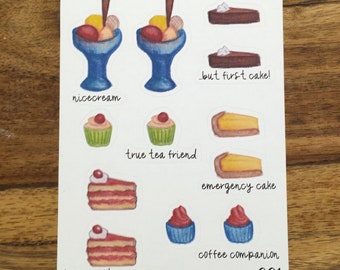 nicecream
...but first cake!
true tea friend
emergency cake
coffee companion